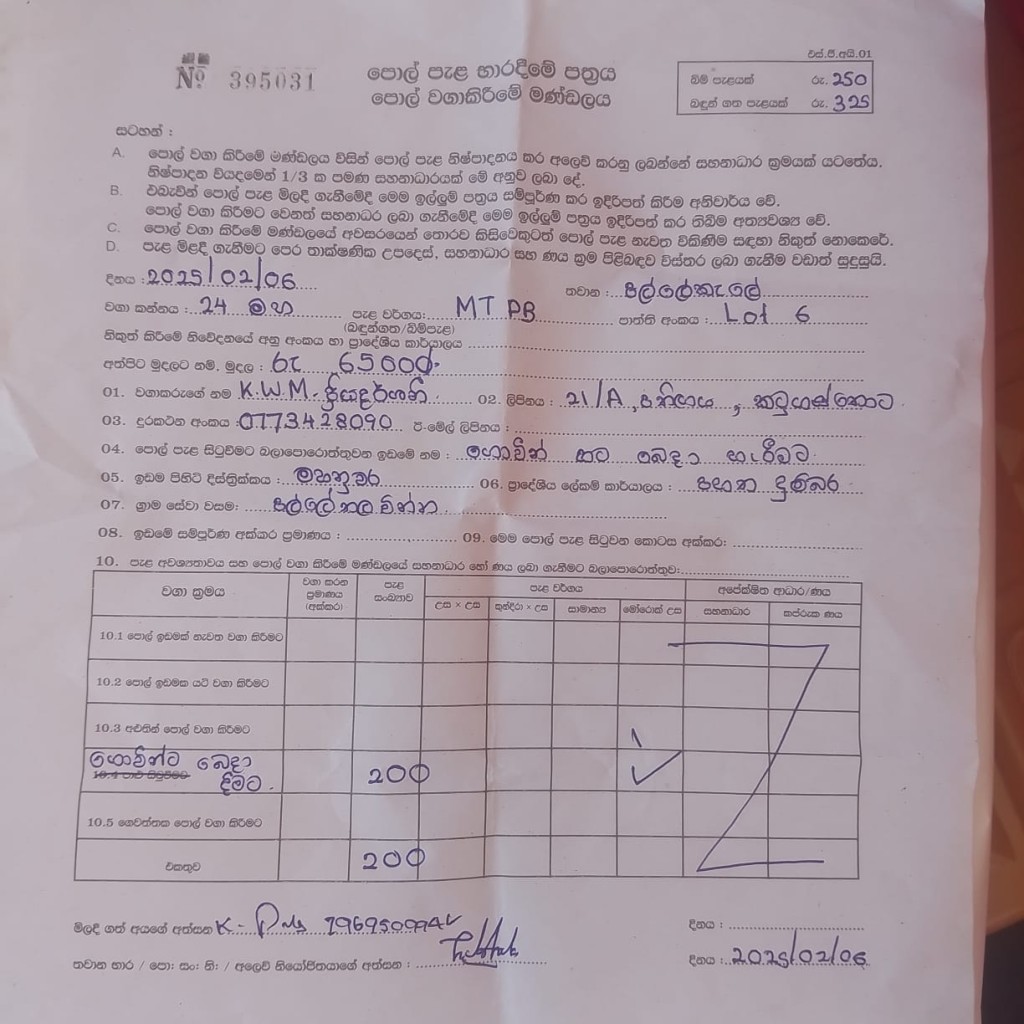 එස්.පී.අයි.01
№ 395031
පොල් පැළ භාරදීමේ පත්‍රය
පොල් වගාකිරීමේ මණ්ඩලය
බිම් පැළයක් රු. 250
බඳුන් ගත පැළයක් රු. 325
සටහන් :
A. පොල් වගා කිරීමේ මණ්ඩලය විසින් පොල් පැළ නිෂ්පාදනය කර අලෙවි කරනු ලබන්නේ සහනාධාර ක්‍රමයක් යටතේය.
නිෂ්පාදන වියදමෙන් 1/3 ක පමණ සහනාධාරයක් මේ අනුව ලබා දේ.
B. එබැවින් පොල් පැළ මිලදී ගැනීමේදී මෙම ඉල්ලුම් පත්‍රය සම්පූර්ණ කර ඉදිරිපත් කිරීම අනිවාර්ය වේ.
පොල් වගා කිරීමට වෙනත් සහනාධර ලබා ගැනීමේදී මෙම ඉල්ලුම් පත්‍රය ඉදිරිපත් කර තිබීම අත්‍යවශ්‍ය වේ.
C. පොල් වගා කිරීමේ මණ්ඩලයේ අවසරයෙන් තොරව කිසිවෙකුටත් පොල් පැළ නැවත විකිණීම සඳහා නිකුත් නොකෙරේ.
D. පැළ මිළදී ගැනීමට පෙර තාක්ෂණික උපදෙස්, සහනාධාර සහ ණය ක්‍රම පිළිබඳව විස්තර ලබා ගැනීම වඩාත් සුදුසුයි.
දිනය : 2025/02/06 තවාන : පල්ලේකැලේ
වගා කන්නය : 24 මහ පැළ වර්ගය: MT PB පාත්ති අංකය : Lot 6
(බඳුන්ගත/බිම්පැළ)
නිකුත් කිරීමේ නිවේදනයේ අනු අංකය හා ප්‍රාදේශීය කාර්යාලය
අත්පිට මුදලට නම්. මුදල : රු 65000/-
01. වගාකරුගේ නම K.W.M. ප්‍රියදර්ශනී 02. ලිපිනය : 21/A, , කටුගස්තොට
03. දුරකථන අංකය : 0773428090 ඊ-මේල් ලිපිනය :
04. පොල් පැළ සිටුවීමට බලාපොරොත්තුවන ඉඩමේ නම : ගොවීන් හට බෙදා හැරීමට
05. ඉඩම පිහිටි දිස්ත්‍රික්කය : මහනුවර 06. ප්‍රාදේශීය ලේකම් කාර්යාලය : පහත දුම්බර
07. ග්‍රාම සේවා වසම: පල්ලේතලවින්න
08. ඉඩමේ සම්පූර්ණ අක්කර ප්‍රමාණය : 09. මෙම පොල් පැළ සිටුවන කොටස අක්කර:
10. පැළ අවශ්‍යතාවය සහ පොල් වගා කිරීමේ මණ්ඩලයේ සහනාධාර හෝ ණය ලබා ගැනීමට බලාපොරොත්තුව:
වගා ක්‍රමය වගා කරන ප්‍රමාණය (අක්කර) පැළ සංඛ්‍යාව පැළ වර්ගය අපේක්ෂිත ආධාර/ණය
උස × උස කුන්දිරා × උස සාමාන්‍ය මෝරොක් උස සහනාධාර කප්රුක ණය
10.1 පොල් ඉඩමක් නැවත වගා කිරීමට
10.2 පොල් ඉඩමක යටි වගා කිරීමට
10.3 අළුතින් පොල් වගා කිරීමට
ගොවීන්ට බෙදා දීමට. 200 ✓
10.5 ගෙවත්තක පොල් වගා කිරීමට
එකතුව 200
මිලදී ගත් අයගේ අත්සන K- 796950994V දිනය :
තවාන භාර / පො: සං: නි: / අලෙවි නියෝජිතයාගේ අත්සන : දිනය : 2025/02/06